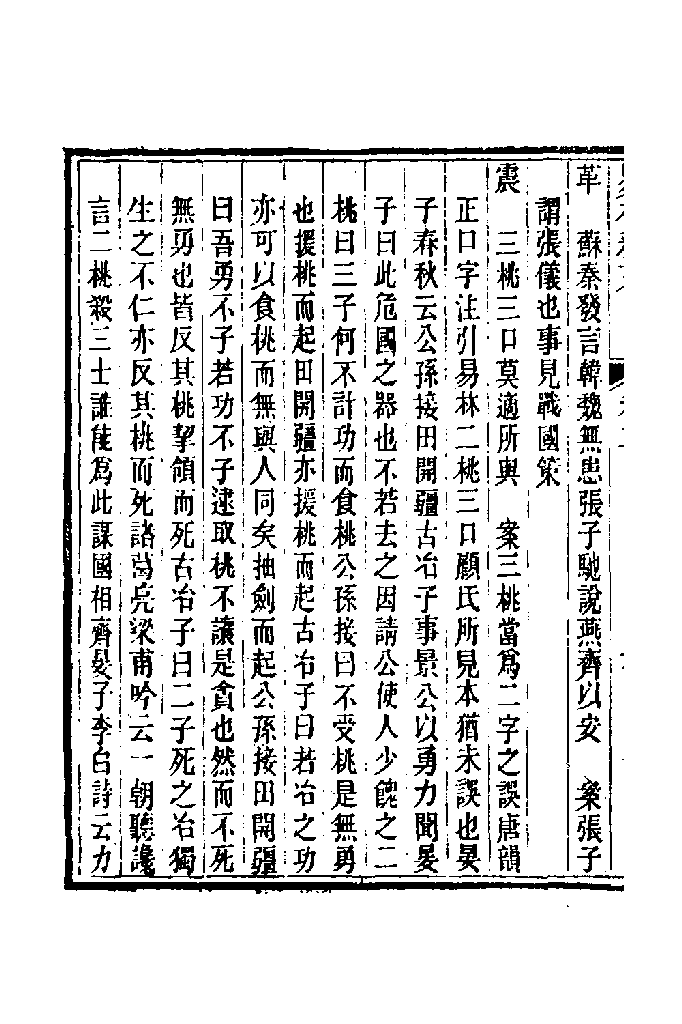 革　蘇秦發言韓魏無患張子馳說燕齊以安　案張子
謂張儀也事見戰國策
震　三桃三口莫適所與　案三桃當爲二字之誤唐韻
正口字注引易林二桃三口顧氏所見本猶未誤也晏
子春秋云公孫接田開疆古冶子事景公以勇力聞晏
子曰此危國之器也不若去之因請公使人少餽之二
桃曰三子何不計功而食桃公孫接曰不受桃是無勇
也援桃而起田開疆亦援桃而起古冶子曰若冶之功
亦可以食桃而無與人同矣抽劍而起公孫接田開疆
曰吾勇不子若功不子逮取桃不讓是貪也然而不死
無勇也皆反其桃挈領而死古冶子曰二子死之冶獨
生之不仁亦反其桃而死諸葛亮梁甫吟云一朝聽讒
言二桃殺三士誰能爲此謀國相齊晏子李白詩云力